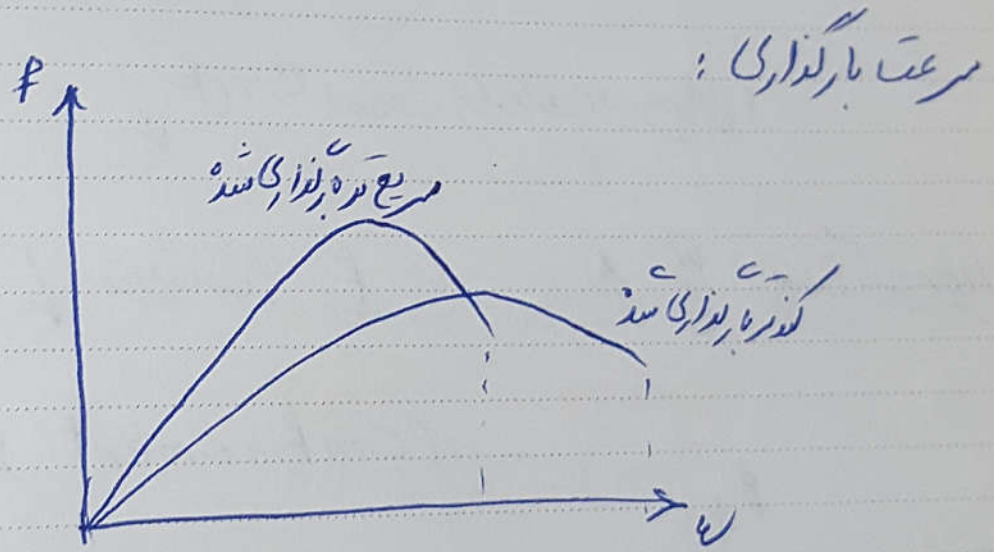 سرعت بارگذاری :
f
سریع تر بارگذاری شده
کندتر بارگذاری شده
ε